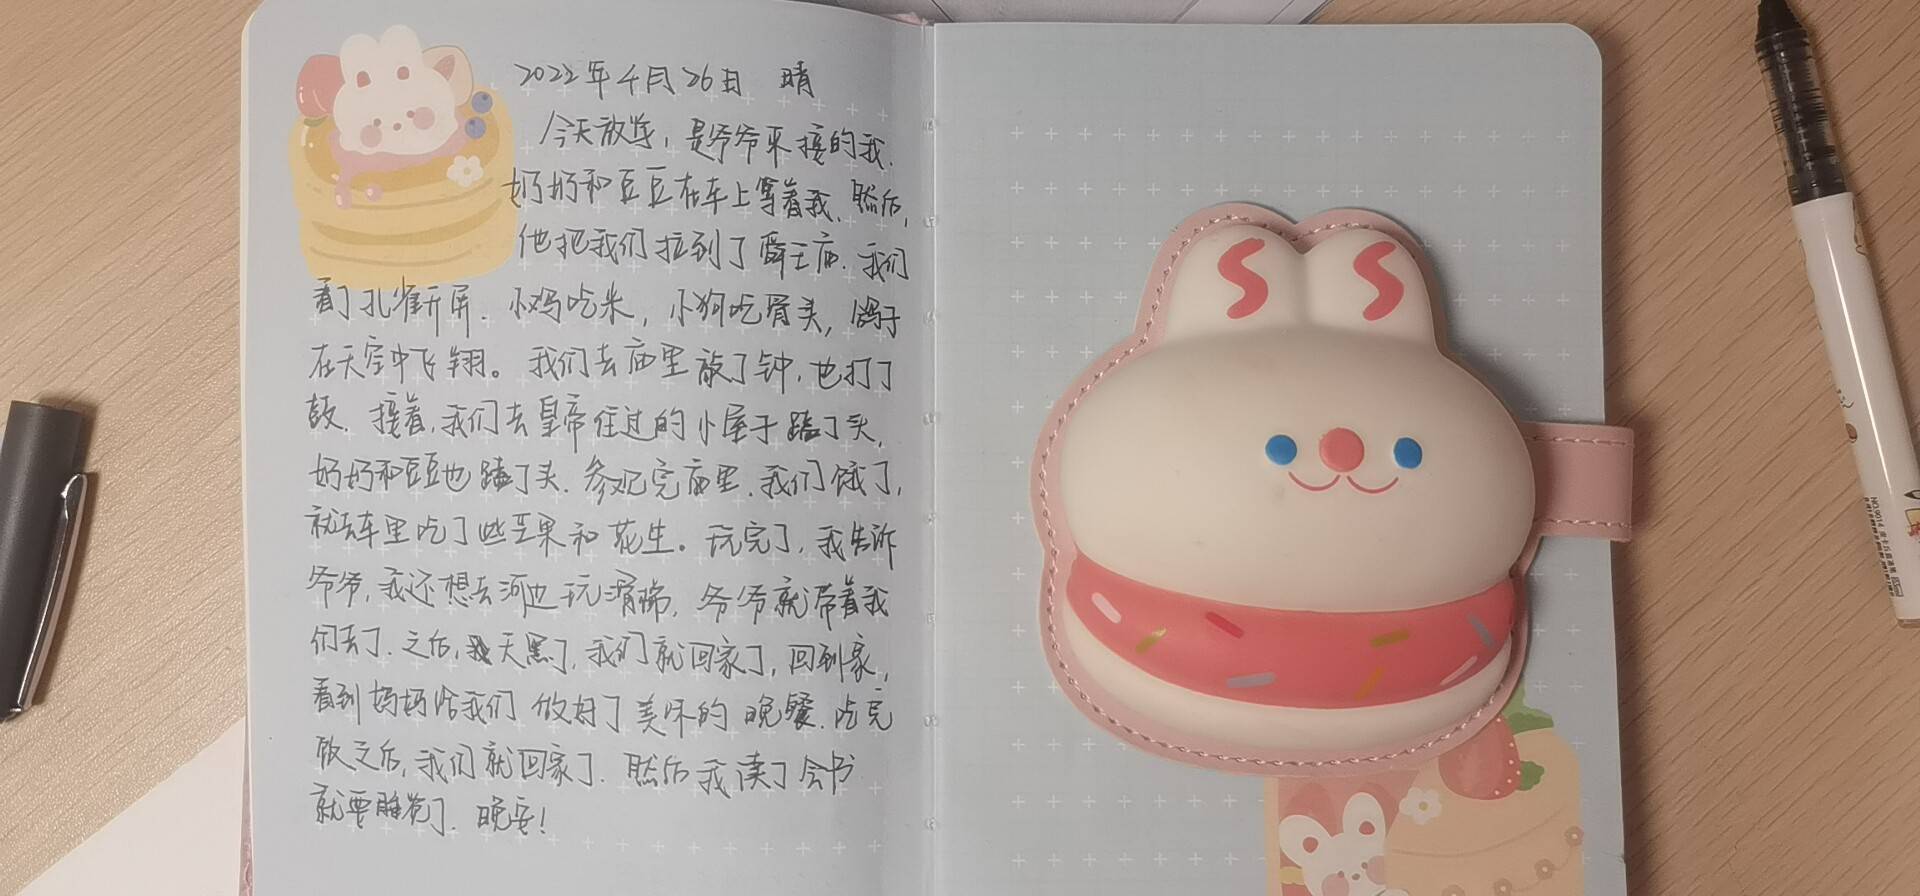 2022年4月26日 晴
今天放学，是爷爷来接的我.
奶奶和豆豆在车上等着我、然后,
他把我们拉到了舜王庙. 我们
看了孔雀开屏. 小鸡吃米，小狗吃骨头，鸽子
在天空中飞翔。我们去庙里敲了钟，也打了
鼓. 接着,我们去皇帝住过的小屋子磕了头,
奶奶和豆豆也磕了头. 参观完庙里.我们饿了,
就去车里吃了些芒果和花生。玩完了,我告诉
爷爷,我还想去河边玩滑梯, 爷爷就带着我
们去了.之后,天黑了,我们就回家了,回到家,
看到妈妈给我们做好了美味的晚餐.吃完
饭之后,我们就回家了. 然后我读了会书
就要睡觉了. 晚安!
S S
NO.9014